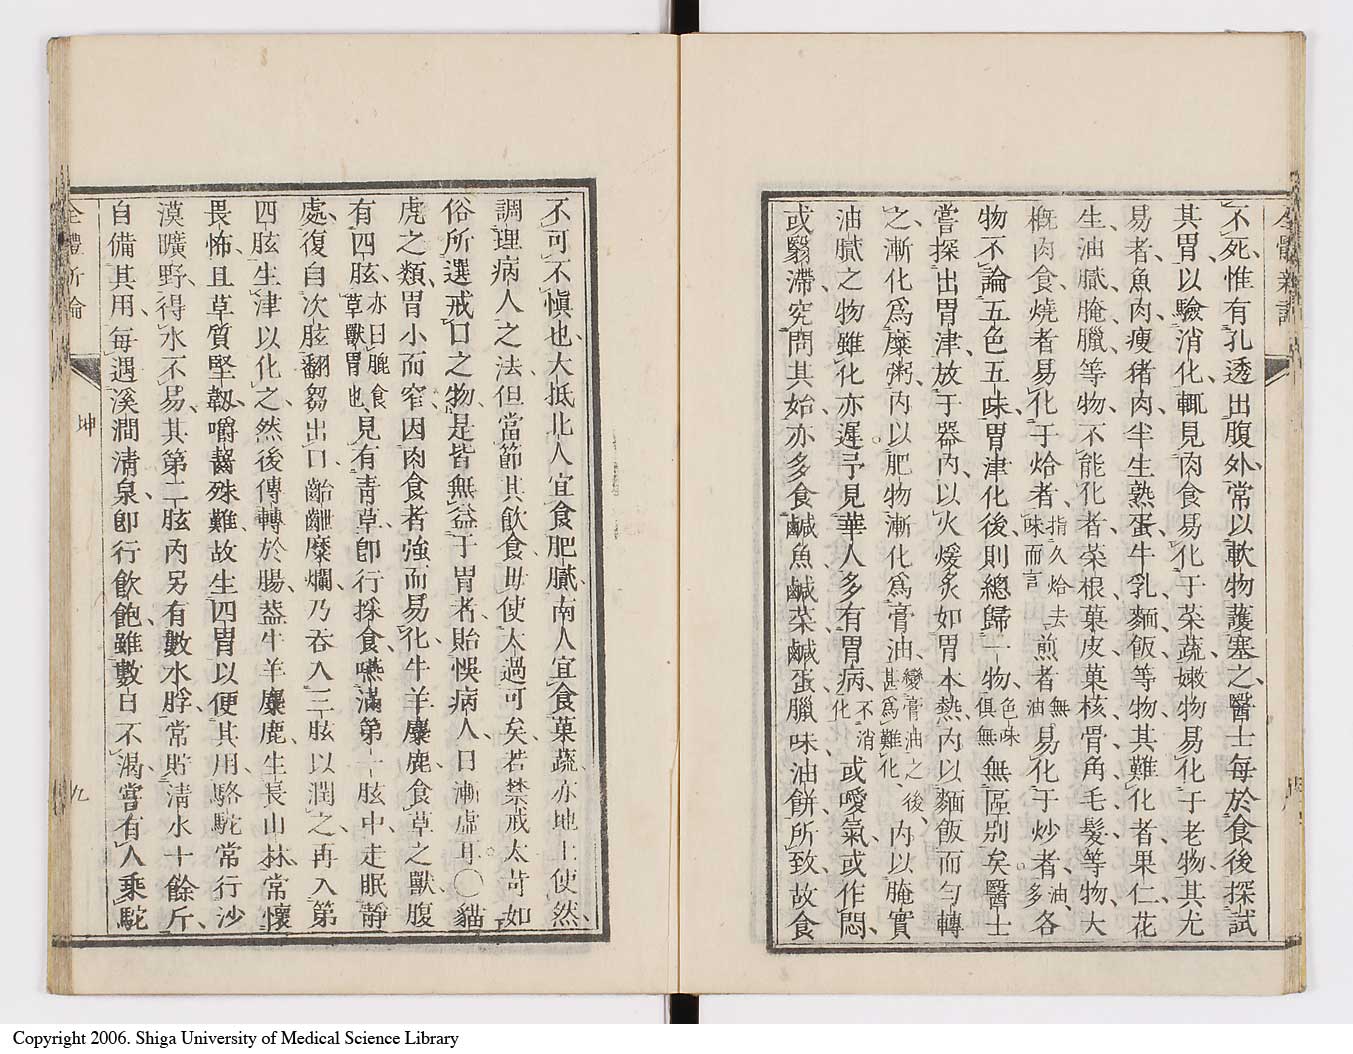 不死惟有孔透出腹外常以軟物護塞之醫士每於食後探試
其胃以驗消化輒見肉食易化于菜蔬嫩物易化于老物其尤
易者魚肉瘦猪肉半生熟蛋牛乳麵飯等物其難化者果仁花
生油膩腌臘等物不能化者菜根菓皮菓核骨角毛髮等物大
概肉食燒者易化于烚者指久烚去味而言煎者無油易化于炒者油多各
物不論五色五味胃津化後則總歸一物色味俱無無區別矣醫士
嘗探出胃津放于器內以火煖炙如胃本熱內以麵飯而勻轉
之漸化爲糜粥內以肥物漸化爲膏油變膏油之後甚爲難化內以腌實
油膩之物雖化亦遲予見華人多有胃病不消化或噯氣或作悶
或翳滯究問其始亦多食鹹魚鹹菜鹹蛋臘味油餅所致故食
不可不愼也大抵北人宜食肥膩南人宜食菓蔬亦地土使然
調理病人之法但當節其飲食毋使太過可矣若禁戒太苛如
俗所選戒口之物是皆無益于胃者貽悞病人日漸虛耳〇貓
虎之類胃小而窄因肉食者強而易化牛羊麋鹿食草之獸腹
有四胘亦曰䏶食草獸胃也見有靑草卽行採食嚥滿第一胘中走眠靜
處復自次胘翻芻出口齝齛糜爛乃吞入三胘以潤之再入第
四胘生津以化之然後傳轉於腸葢牛羊麋鹿生長山林常懷
畏怖且草質堅韌嚼齧殊難故生四胃以便其用駱駝常行沙
漠曠野得水不易其第二胘內另有數水脬常貯清水十餘斤
自備其用每遇溪澗淸泉卽行飮飽雖數日不渴嘗有人乘駝
全體新論
坤
九
Copyright 2006. Shiga University of Medical Science Library